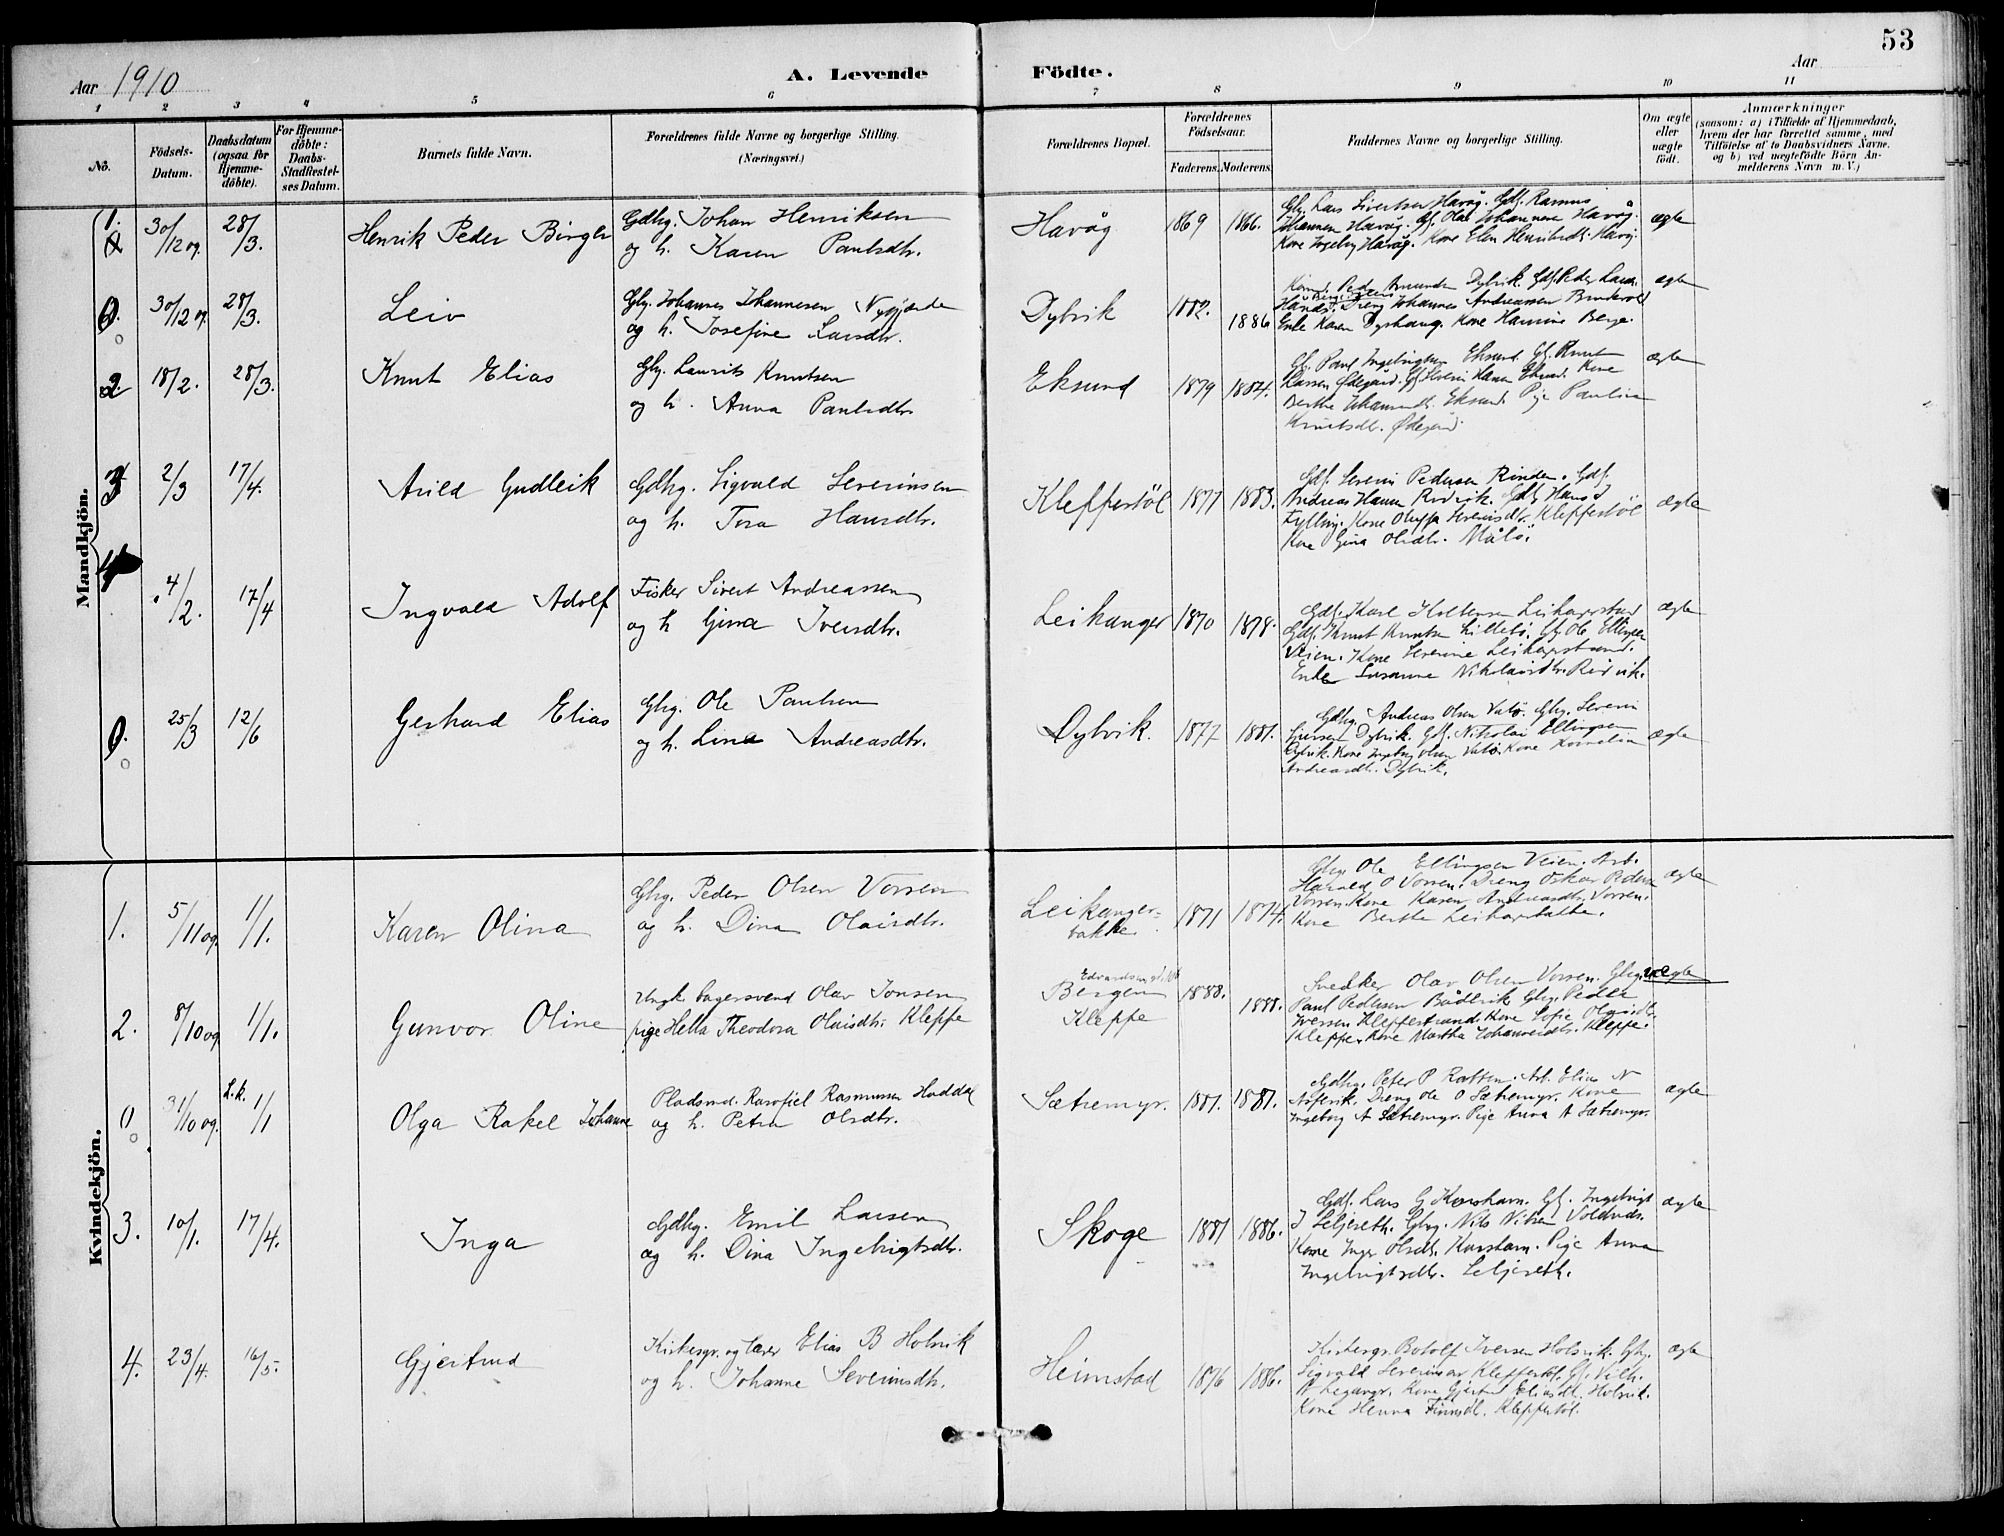 53
Aar 1910
A. Levende
Födte.
Aar
1 2 3 4 5 6 7 8 9 10 11
No.
Födsels-
Datum.
Daabsdatum
(ogsaa for
Hjemme-
döbte).
For Hjemme-
döbte:
Daabs-
Stadfæstel-
ses Datum.
Barnets fulde Navn.
Forældrenes fulde Navne og borgerlige Stilling.
(Næringsvei.)
Forældrenes Bopæl.
Forældrenes
Födselsaar.
Faderens. Moderens.
Faddernes Navne og borgerlige Stilling.
Om ægte
eller
uægte
födt.
Anmærkninger
(saasom: a) i Tilfælde af Hjemmedaab,
hvem der har forrettet samme, med
Tilföielse af to Daabsvidners Navne,
og b) ved uægtefödte Börn An-
melderens Navn m. V.)
Mandkjön.
1. 30/12 09. 28/3. Henrik Peder Birger
Gdbg. Johan Henriksen
og h. Karen Paulsdtr.
Havåg 1869 1866.
Gbg. Lars Sivertsen Havåg. Gdf. Rasmus
Johannesen Havåg. Gf. Olai Johannesen Havåg.
Kone Ingeborg Havåg. Kone Elen Henriksdt. Havåg.
ægte
0. 30/12 09. 28/3. Leiv
Gbg. Johannes Johannesen Nygjærde
og h. Josefine Larsdtr.
Dybvik 1882. 1886
Peder Amundsen Dybvik. Gdf. Peder
Dreng Johannes Andreassen
Enke Karen Kone Hansine Berge.
ægte
2. 18/2. 28/3. Knut Elias
Gbg. Laurits Knutsen
og h. Anna Paulsdtr.
Eksund 1879 1884.
Gf. Paul Ingebrigtsen Eksund. Gf. Knut
Larsen Ødegård. Gf. Severin Hansen Eksund. Kone
Berthe Johannesdt. Eksund. Pige Pauline
Knutsdt. Ødegård.
ægte
3 2/3 17/4. Arild Gudleik
Gdbg. Sigvald Severinsen
og h. Tora Hansdtr.
Kleppestöl 1877 1883.
Gdf. Severin Pedersen Rinden. Gdf.
Andreas Hansen Rödvik. Gdf. Hans J
Fylling. Kone Oluffa Severinsdtr. Kleppestöl
Kone Gina Olsdtr. Målö.
ægte
4 4/2. 17/4 Ingvald Adolf
Fisker Sivert Andreassen
og h Gina Iversdtr.
Leikanger 1870 1878.
Gdf. Karl Leikangstrand
Gdf. Knut Knutsen Lillebö. Gbg. Ole Ellingsen
Veien. Kone Severine Leikangstrand.
Enke Susanne Nikolaisdtr. Rödvik.
ægte
0. 25/3 12/6 Gerhard Elias
Gbg. Ole Paulsen
og h. Lina Andreasdtr.
Dybvik. 1877 1881.
Gdbg. Andreas Olsen Vatö. Gbg. Severin
Iversen Dybvik. Gdf. Nikolai Ellingsen
Dybvik. Kone Ingeborg Olsen Vatö. Kone Kornelia
Andreasdt. Dybvik.
ægte
Kvindekjön.
1. 5/11 09. 1/1. Karen Olina
Gbg. Peder Olsen Vorren
og h. Dina Olaisdtr.
Leikanger-
bakke. 1871 1874.
Gbg. Ole Ellingsen Veien. Arb.
Harald O Vorren. Dreng Oskar Pedersen
Vorren. Kone Karen Andreasdtr. Vorren.
Kone Berthe Leikangbakke.
ægte
2. 8/10 09 1/1. Gunvor Oline
Ungk. bagersvend Olav Jonsen
pige Hella Theodora Olaisdtr. Kleppe
Bergen
Kleppe 1888. 1888.
Snedker Olav Olsen Vorren. Gbg.
Paul Pedersen Bådsvik. Gbg. Peder
Iversen Kleppestrand. Kone Sofie Olaisdtr.
Kleppe. Kone Martha Johannesdtr. Kleppe.
uægte
0 31/10 09. L.k. 1/1 Olga Rakel Johanne
Pladsmd. Karafiel Rasmussen Haddal
og h. Petra Olsdtr.
Sætremyr. 1881. 1881.
Gdbg. Peter P Rotsen. Arb. Elias N
Dreng Ole O Sætremyr. Kone
Ingeborg A Sætremyr. Pige Anna A Sætremyr.
ægte
3. 10/1. 17/4. Inga
Gdbg. Emil Larsen
og h. Dina Ingebrigtsdtr.
Skoge 1881 1886.
Gdf. Lars G Korsham. Gf. Ingebrigt
J Seljeseth. Gbg. Nils Nilsen Voldnes.
Kone Inger Olsdtr. Korsham. Pige Anna
Ingebrigtsdtr. Seljeseth.
ægte
4. 23/4. 16/5. Gjertrud
Kirkesgr. og lærer Elias B Holsvik
og h. Johanne Severinsdtr.
Heimstad 1876 1886.
Kirkesgr. Botolf Iversen Holsvik. Gbg.
Sigvald Severinsen Kleppestöl. Gf. Vilh.
N Legangr. Kone Gjertrud Eliasdt. Holsvik.
Kone Henna Finnsdt. Kleppestöl.
ægte